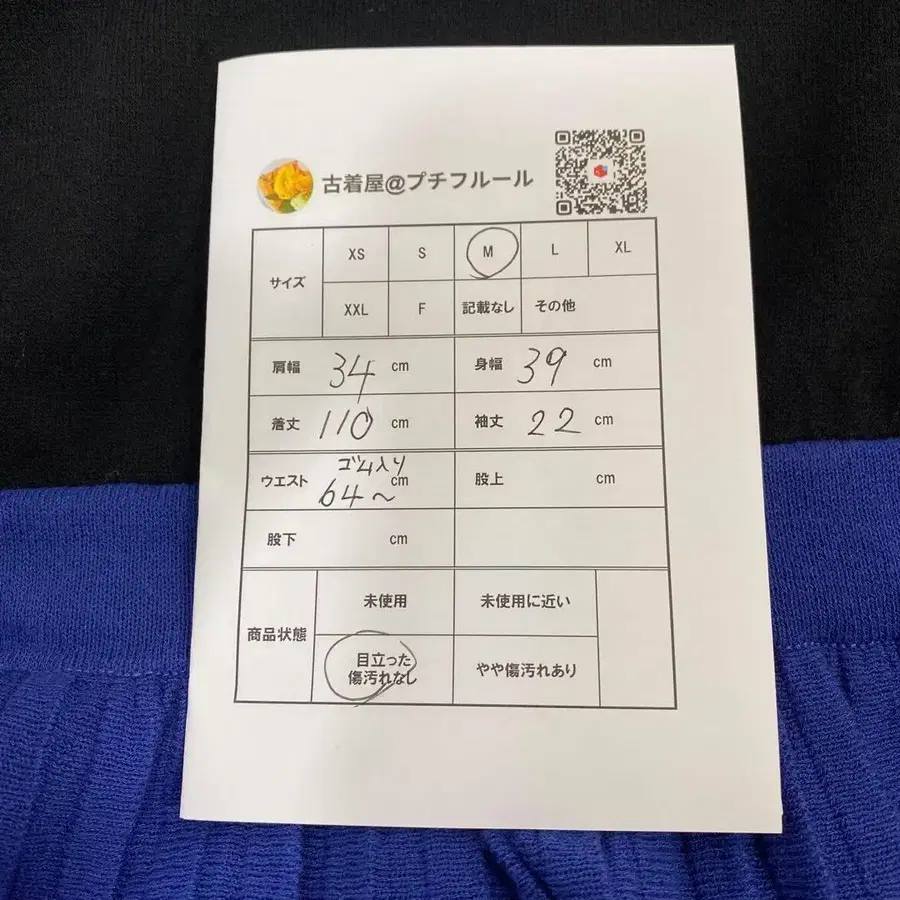 古着屋@プチフルール
サイズ XS S M L XL
XXL F 記載なし その他
肩幅 34 cm 身幅 39 cm
着丈 110 cm 袖丈 22 cm
ウエスト ゴム入り 64〜 cm 股上 cm
股下 cm
商品状態 未使用 未使用に近い
目立った
傷汚れなし やや傷汚れあり